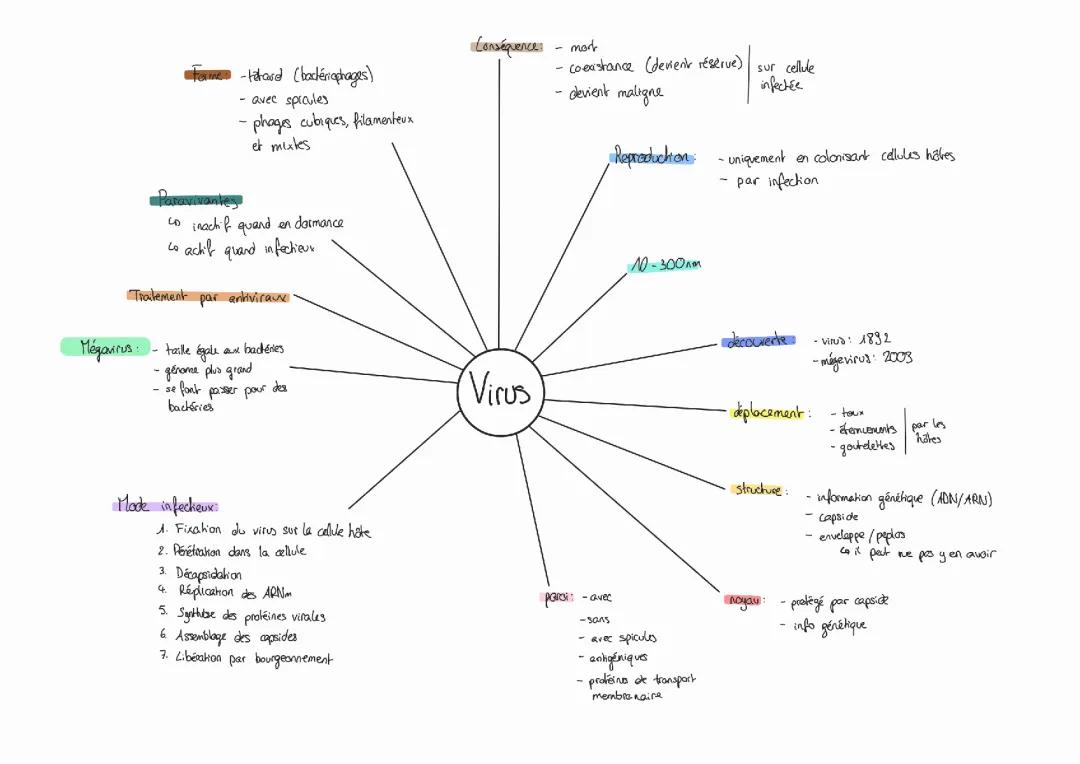 Conséquence: - mort
- coexistance (devient réserve)
- devient maligne
sur cellule
infectée
Forme: - têtard (bactériophages)
- avec spicules
- phages cubiques, filamenteux
et mixtes
Reproduction: - uniquement en colonisant cellules hôtes
- par infection
Paravivantes
↳ inactif quand en dormance
↳ actif quand infectieux
10-300nm
Traitement par antiviraux
Mégavirus: - taille égale aux bactéries
- génome plus grand
- se font passer pour des
bactéries
Virus
découverte: - virus: 1892
- mégevirus: 2003
déplacement: - toux
- éternuements
- goutelettes
par les
hôtes
structure: - information génétique (ADN/ARN)
- capside
- enveloppe/peplos
↳ il peut ne pas y en avoir
Mode infectieux:
1. Fixation du virus sur la cellule hôte
2. Pénétration dans la cellule
3. Décapsidation
4. Réplication des ARNm
5. Synthèse des protéines virales
6. Assemblage des capsides
7. Libération par bourgeonnement
paroi: - avec
- sans
- avec spicules
- antigéniques
- protéines de transport
membranaire
noyau: - protégé par capside
- info génétique